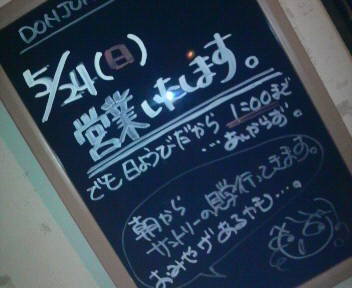 DONJU
5/24(日)
営業いたします。
でも日ようびだから 1:00まで
朝から
サントリーの見学行ってきます。
おみやげあるかも…。